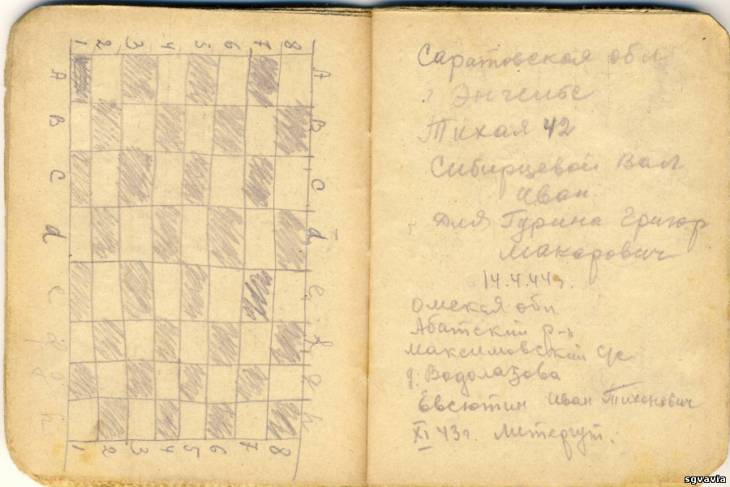 1 2 3 4 5 6 7 8
A A
B B
C C
d d
e e
f f
g g
h h
1 2 3 4 5 6 7 8
Саратовская обл
г Энгельс
Тихая 42
Сибирцевой Вал
Иван
Для Гурина Григор
Макарович
14.4.44г.
Омская обл
Абатский р-н
Максимовский с/с
д. Водолазова
Евсютин Иван Тихонович
XI 43г.
sgvavia